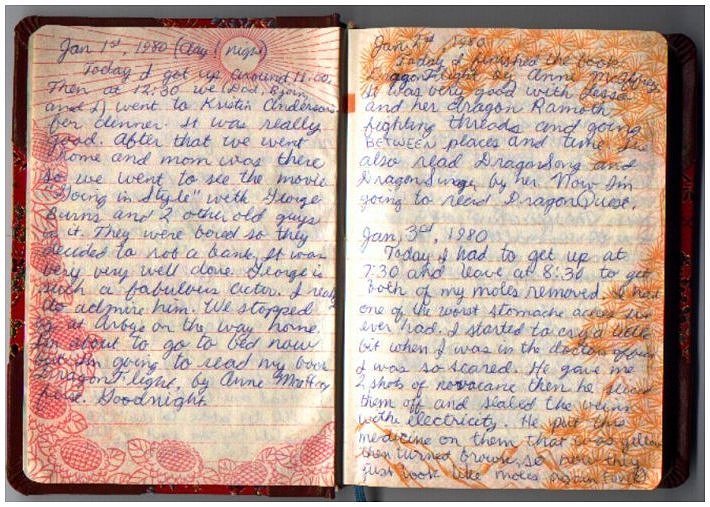 Jan 1st, 1980 (day / night)
Today I got up around 11:00.
Then at 12:30 we (Dad, Bjorn,
and I) went to Kristin Anderson
for dinner. It was really
good. After that we went
home and mom was there
so we went to see the movie
"Going in Style" with George
Burns and 2 other old guys
in it. They were bored so they
decided to rob a bank, It was
very very well done. George is
such a fabulous actor. I really
do admire him. We stopped
at Arbys on the way home.
I'm about to go to bed now
but I'm going to read my book
DragonFlight, by Anne McCaffrey
first. Goodnight
Jan 2nd, 1980
Today I finished the book
DragonFlight by Anne McCaffrey.
It was very good with Lessa
and her dragon Ramoth
fighting threads and going
BETWEEN places and time. I've
also read DragonSong and
DragonSinger by her. Now I'm
going to read DragonQuest.
Jan, 3rd, 1980
Today I had to get up at
7:30 and leave at 8:30 to get
both of my moles removed. I had
one of the worst stomache aches I've
ever had. I started to cry a little
bit when I was in the doctors office
I was so scared. He gave me
2 shots of novacane then he sliced
them off and sealed the veins
with electricity. He put this
medicine on them that was yellow
then turned brown, so now they
just look like moles again